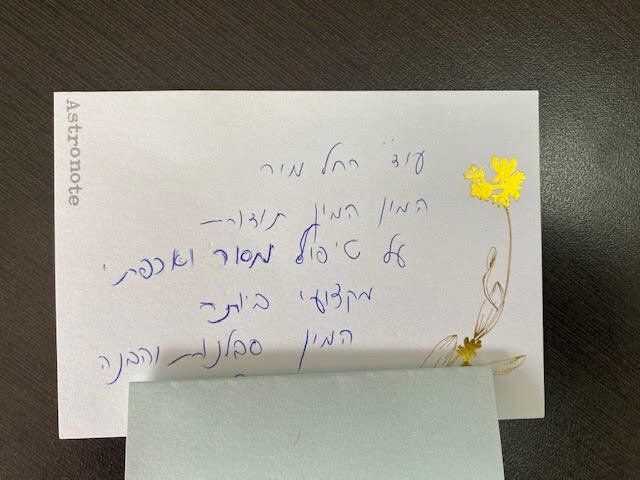 Astronote
עוד" רחל מיר
המון המון תודות
על טיפול מסור ואכפתי
מקצועי ביותר
המון סבלנות והבנה